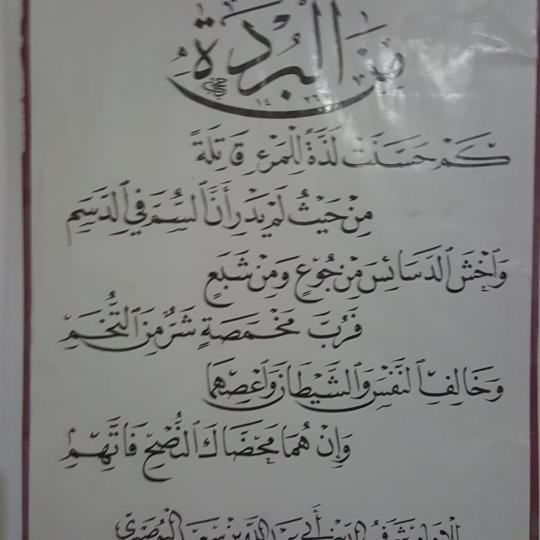 مِنَ الْبُرْدَةِ
١٤٢٦
كَمْ حَسَّنَتْ لَذَّةً لِلْمَرْءِ قَاتِلَةً
مِنْ حَيْثُ لَمْ يَدْرِ أَنَّ السُّمَّ فِي الدَّسَمِ
وَاخْشَ الدَّسَائِسَ مِنْ جُوعٍ وَمِنْ شَبَعٍ
فَرُبَّ مَخْمَصَةٍ شَرٌّ مِنَ التُّخَمِ
وَخَالِفِ النَّفْسَ وَالشَّيْطَانَ وَاعْصِهِمَا
وَإِنْ هُمَا مَحَّضَاكَ النُّصْحَ فَاتَّهِمِ
للإمام شرف الدين أبي عبد الله بن سعيد البوصيري